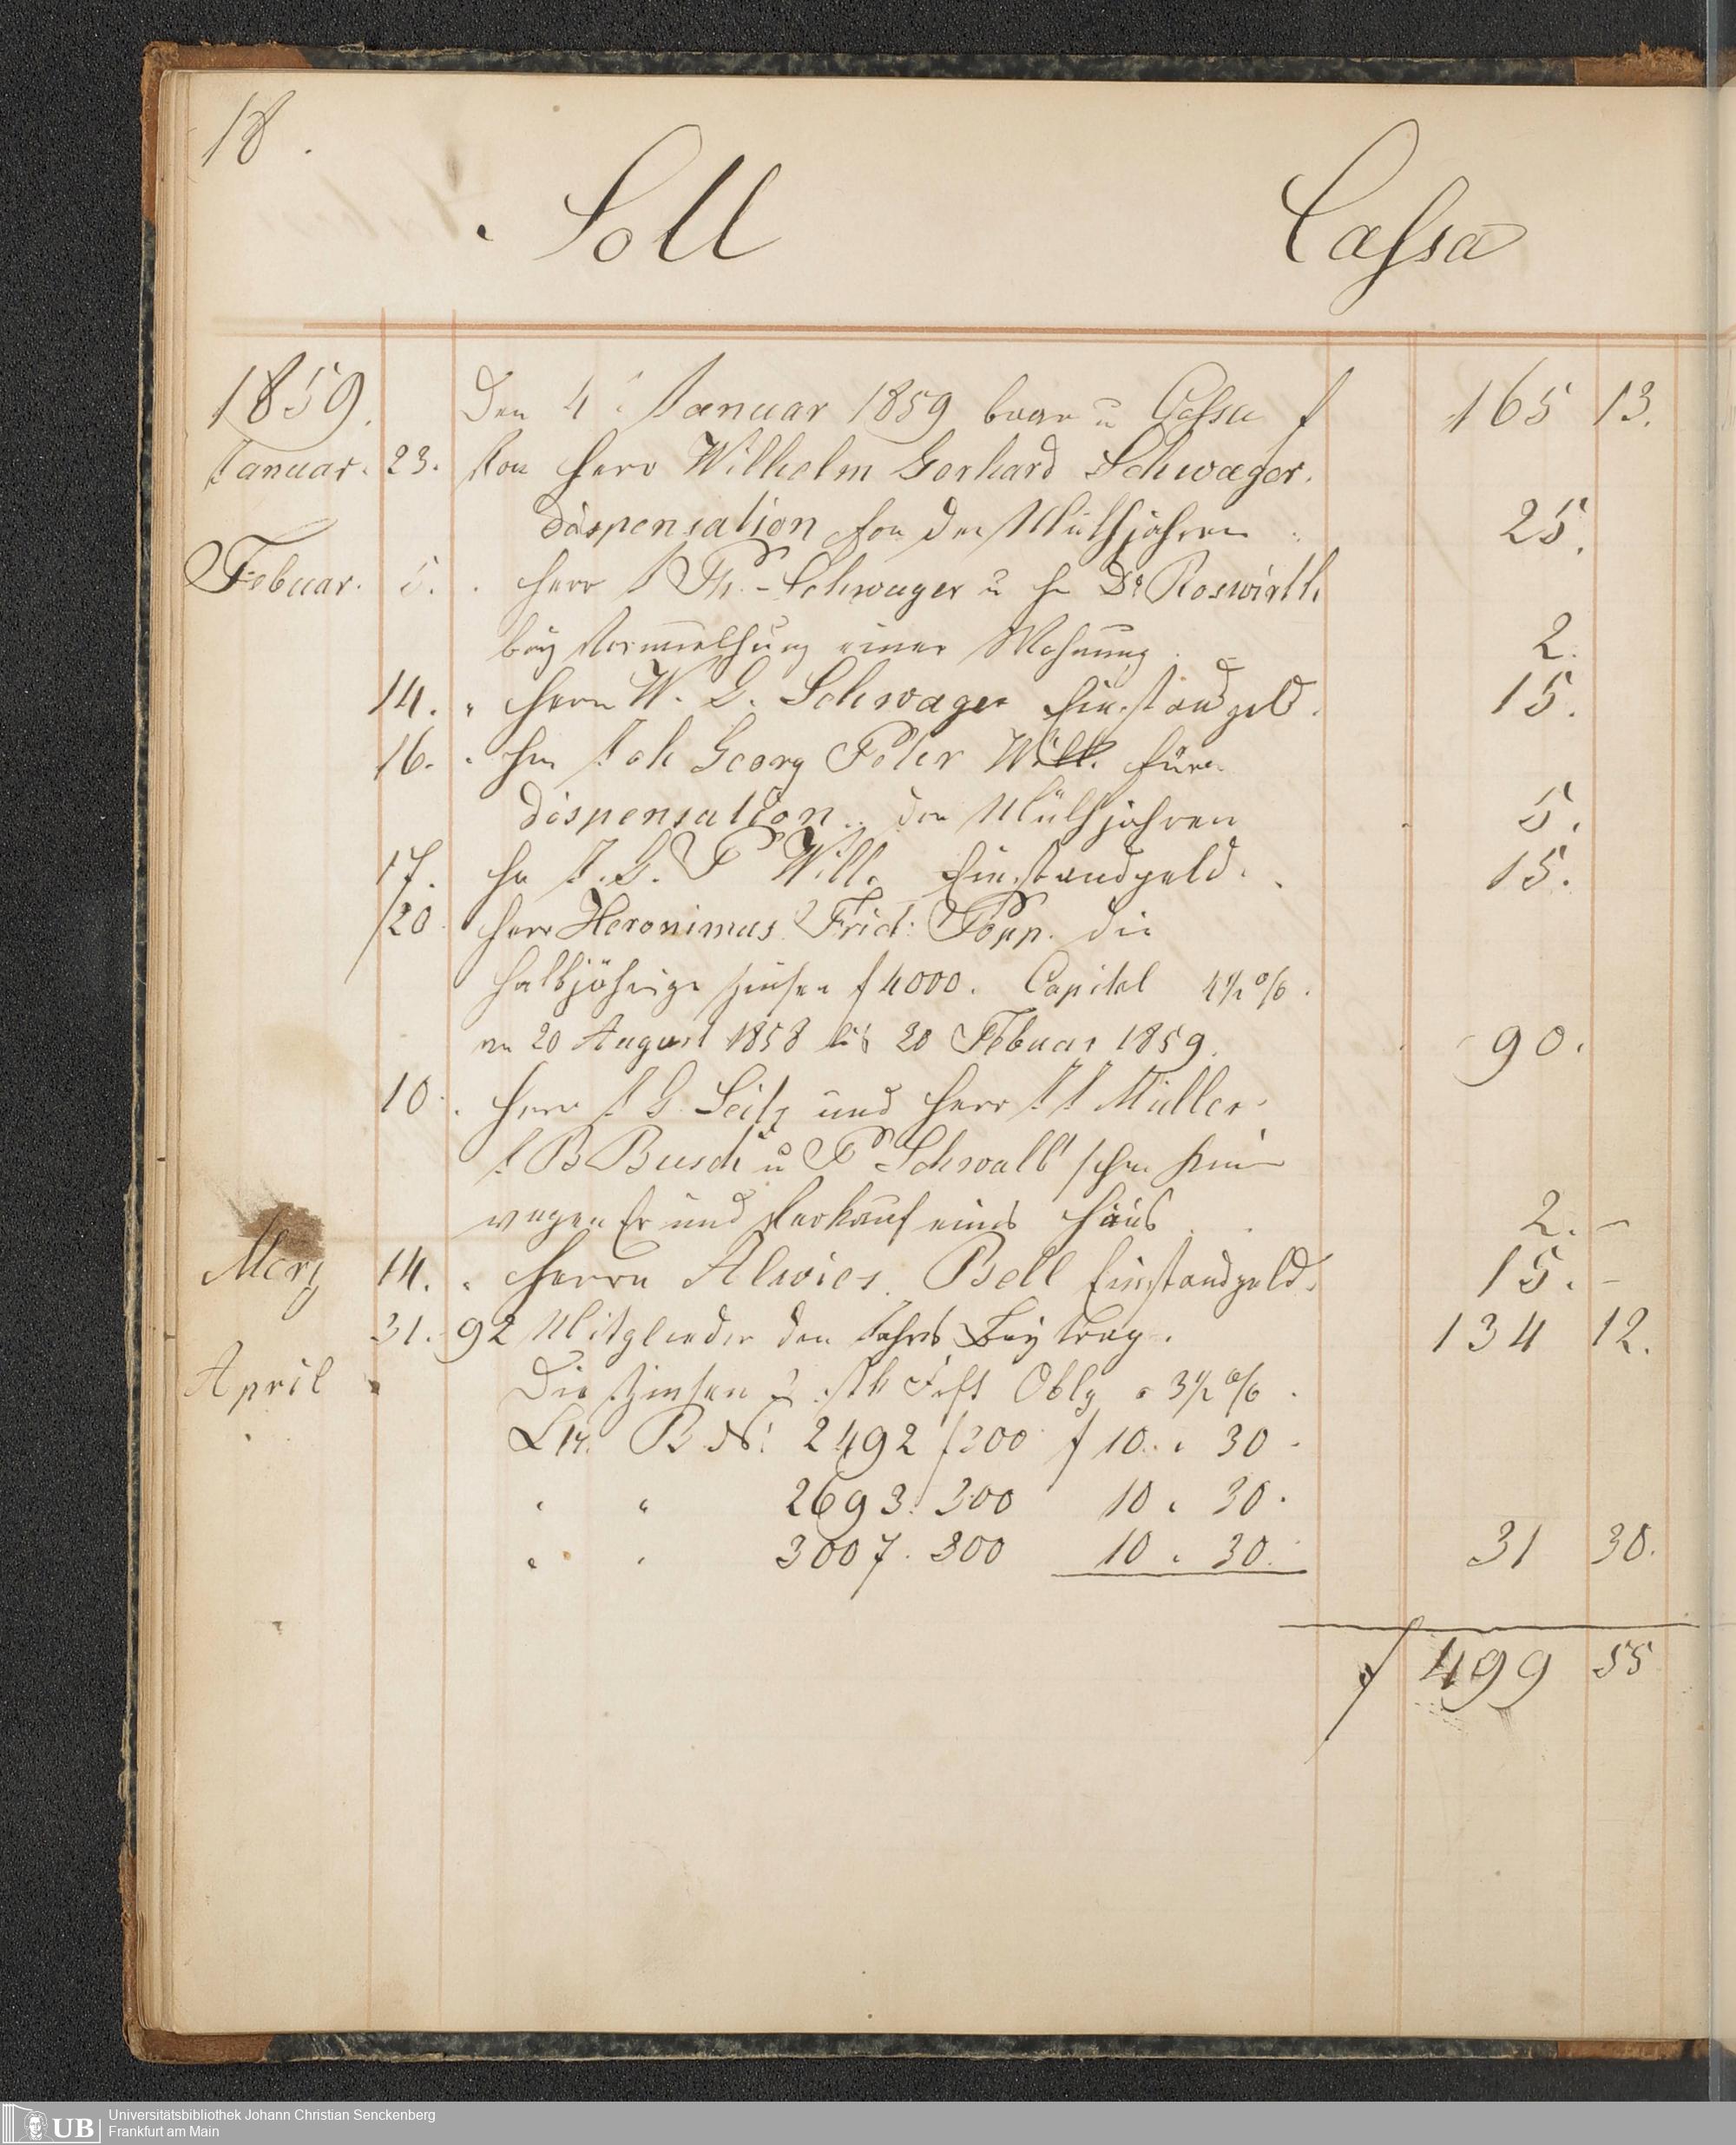 18.
Soll Cassa
1859. Den 4 Januar 1859 baar u Cassa f 165 13.
Januar. 23. Von Herr Wilhelm Gerhard Schwager.
Dispensation von den Muthjahren 25.
Febuar. 5. " Herr J Ph. Schwager u H Dr Roswirth
bey Vermiethung einer Wohnung 2.
14. " Herrn W. G. Schwager Einstandgeld. 15.
16. " Hrn Joh Georg Peter Will. für
Dispensation der Muthjahren 5.
17. Hr J. G. P Will. Einstandgeld. 15.
20 Herr Heronimus Frid: Popp. die
halbjährige Zinsen f 4000. Capital 4½ %.
vn 20 August 1858 bis 20 Febuar 1859. 90.
10. " Herr J G. Seitz und Herr J J Müller
J B Busch u P Schwalb
wegen Er und Verkauf eines Haus 2. –
Merz 14. " Herrn Alwies Bell Einstandgeld. 15. –
31. 92 Mitglieder den Jahrs Beytrag. 134 12.
April Die Zinsen Oblg a 3½ %.
Ltr. B No: 2492 f 300 f 10 " 30.
" " 2693. 300 10 " 30.
" " 3007. 300 10 " 30. 31 30.
f 499 55
UB
Universitätsbibliothek Johann Christian Senckenberg
Frankfurt am Main